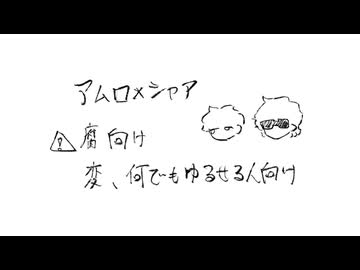 アムロ×シャア
⚠腐向け
変、何でもゆるせる人向け